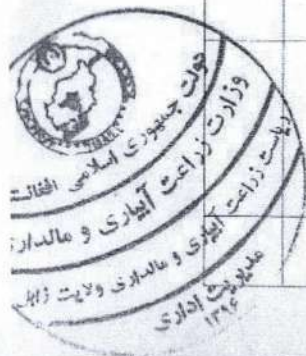 دولت جمهوری اسلامی افغانستان
وزارت زراعت آبیاری و مالداری
ریاست زراعت آبیاری و مالداری ولایت زابل
مدیریت اداری
۱۳۹۶